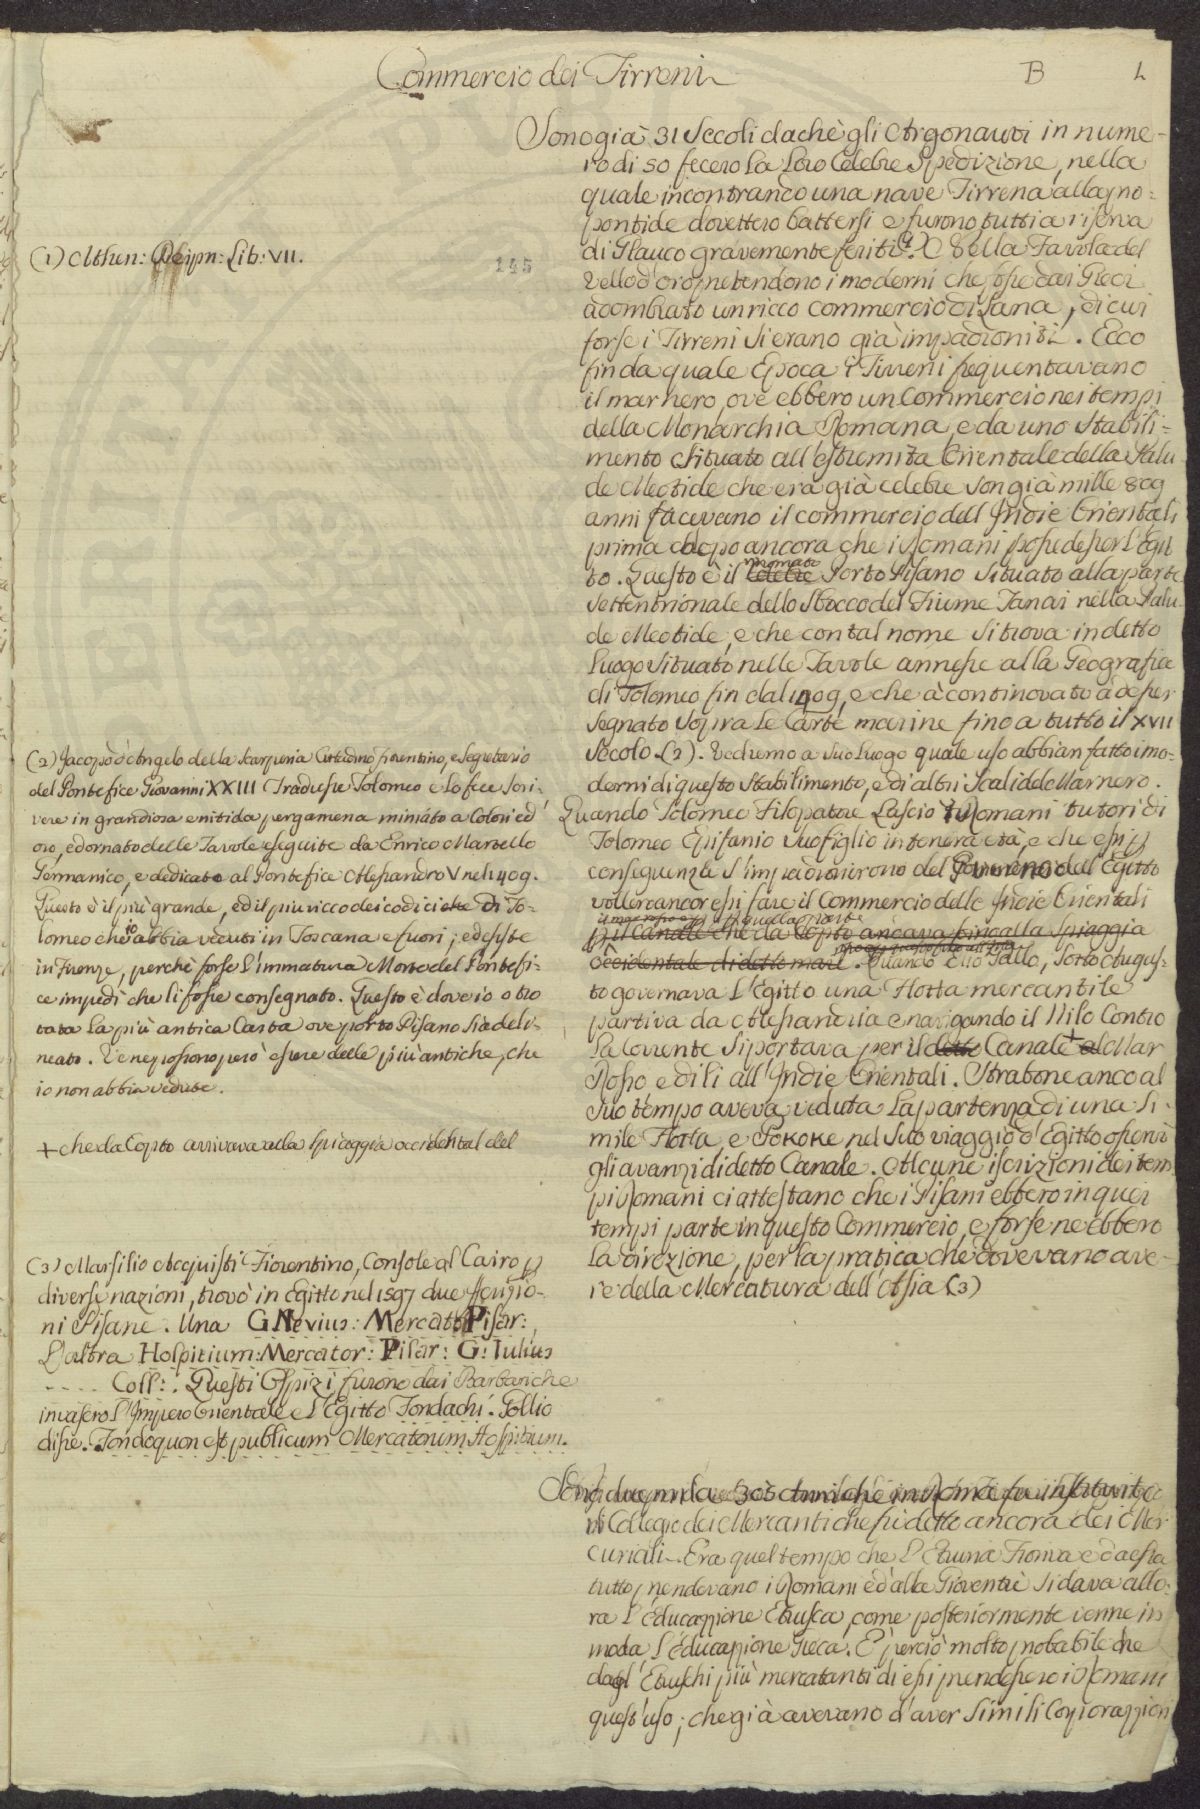 Commercio dei Tirreni
B
L
Sono già 31 Secoli dachè gli Argonauti in nume-
ro di 50 fecero la loro Celebre Spedizione, nella
quale incontrando una nave Tirrena alla Pro-
pontide dovettero battersi e furono tutti a riserva
di Glauco gravemente feriti (1). Della Favola del
Vello d'oro pretendono i moderni che fosse dai Greci
adombrato un ricco commercio di Lana, di cui
forse i Tirreni si erano già impadroniti. Ecco
fin da quale Epoca i Tirreni frequentavano
il mar nero, ove ebbero un Commercio nei tempi
della Monarchia Romana, e da uno Stabili=
mento situato all'estremità Orientale della Palu
de Meotide che era già celebre son già mille 809
anni facevano il commercio dell'Indie Orientali
prima e dopo ancora che i Romani possedesser l'Egit
to. Questo è il celebre rinomato Porto Pisano situato alla parte
Settentrionale dello Sbocco del Fiume Tanai nella Palu
de Meotide, e che con tal nome si trova in detto
Luogo situato nelle Tavole annesse alla Geografia
di Tolomeo fin dal 1409, e che à continovato a desser
segnato sopra le Carte marine fino a tutto il XVII
Secolo (2). Vedremo a suo luogo quale uso abbian fatto i mo-
derni di questo Stabilimento, e di altri Scali del Marnero.
Quando Tolomeo Filopatore Lasciò i Romani tutori di
Tolomeo Epifanio suo figlio in tenera età, e che essi p
conseguenza s'impadronirono del Governo del Egitto
voller ancor essi fare il Commercio delle Indie Orientali
p il Canale che da Copto ancava fin alla Spiaggia
occidentale di detto mare. Quando Elio Gallo, sotto Augus-
to governava L'Egitto una Flotta mercantile
partiva da Alessandria e navigando il Nilo Contro
la Corrente si portava per il detto Canale + al Mar
Rosso e di li all'Indie Orientali. Strabone anco al
suo tempo aveva veduta la partenza di una si-
mile Flotta, e Pokoke nel suo viaggio d'Egitto osservò
gli avanzi di detto Canale. Alcune iscrizioni dei tem
pi Romani ci attestano che i Pisani ebbero in quei
tempi parte in questo Commercio, e forse ne ebbero
la direzione, per la pratica che dovevano ave-
re della Mercatura dell'Asia (3)
Sono due mila 305 Anni che in Roma fu instituito
il Collegio dei Mercanti che fù detto ancora dei Mer
curiali. Era quel tempo che L'Etruria Fioriva e da essa
tutto prendevano i Romani ed alla Gioventù si dava allo-
ra L'Educazzione Etrusca, come posteriormente venne in
moda L'Educazzione Greca. È perciò molto probabile che
dagl'Etruschi più mercatanti di essi prendessero i Romani
quest'uso; che già avevano d'aver simili Corporazzioni
(1) Athen: Deipn: Lib: VII.
145
(2) Jacopo d'Angelo della Scarperia Cittadino fiorentino, e Segretario
del Pontefice Giovanni XXIII Tradusse Tolomeo e lo fece scri-
vere in grandiosa e nitida pergamena miniato a Colori ed
oro, ed ornato delle Tavole eseguite da Enrico Martello
Germanico, e dedicato al Pontefice Alessandro V nel 1409.
Questo è il più grande, ed il più ricco dei codici che di To-
lomeo che io abbia veduti in Toscana e fuori; ed esiste
in Firenze, perchè forse l'immatura Morte del Pontefi-
ce impedì che li fosse consegnato. Questo è dove io o tro
vata la più antica Carta ove porto Pisano sia deli-
neato. Ve ne possono però essere delle più antiche, che
io non abbia vedute.
+ che da Copto arrivava alla Spiaggia occidental del
(3) Marsilio Acquisti Fiorentino, Console al Cairo p
diverse nazioni, trovò in Egitto nel 1597 due Iscrizio-
ni Pisane. Una G. Nevius: Mercator Pisar:
L'altra Hospitium: Mercator: Pisar: G: Iulius
.... Coll:. Questi Ospizi furono dai Barbari che
invasero l'Impero Orientale e l'Egitto Fondachi. Pollio
disse. Fondoquon est publicum Mercatorum Hospitium.